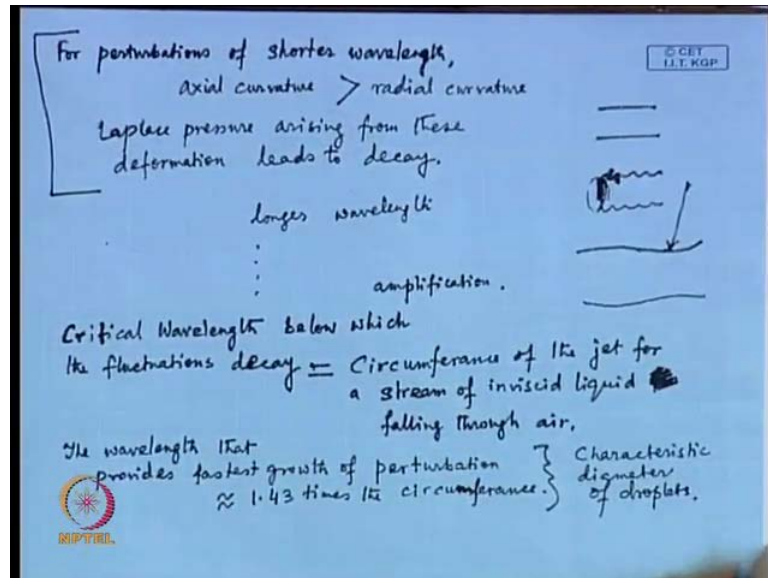 For perturbations of shorter wavelength,
© CET
I.I.T. KGP
axial curvature > radial curvature
Laplace pressure arising from these
deformation leads to decay.
longer wavelength
amplification.
Critical Wavelength below which
the fluctuations decay = Circumferance of the jet for
a stream of inviscid liquid
falling through air.
The wavelength that
provides fastest growth of perturbation
≈ 1.43 times the circumferance.
Characteristic
diameter
of droplets.
NPTEL